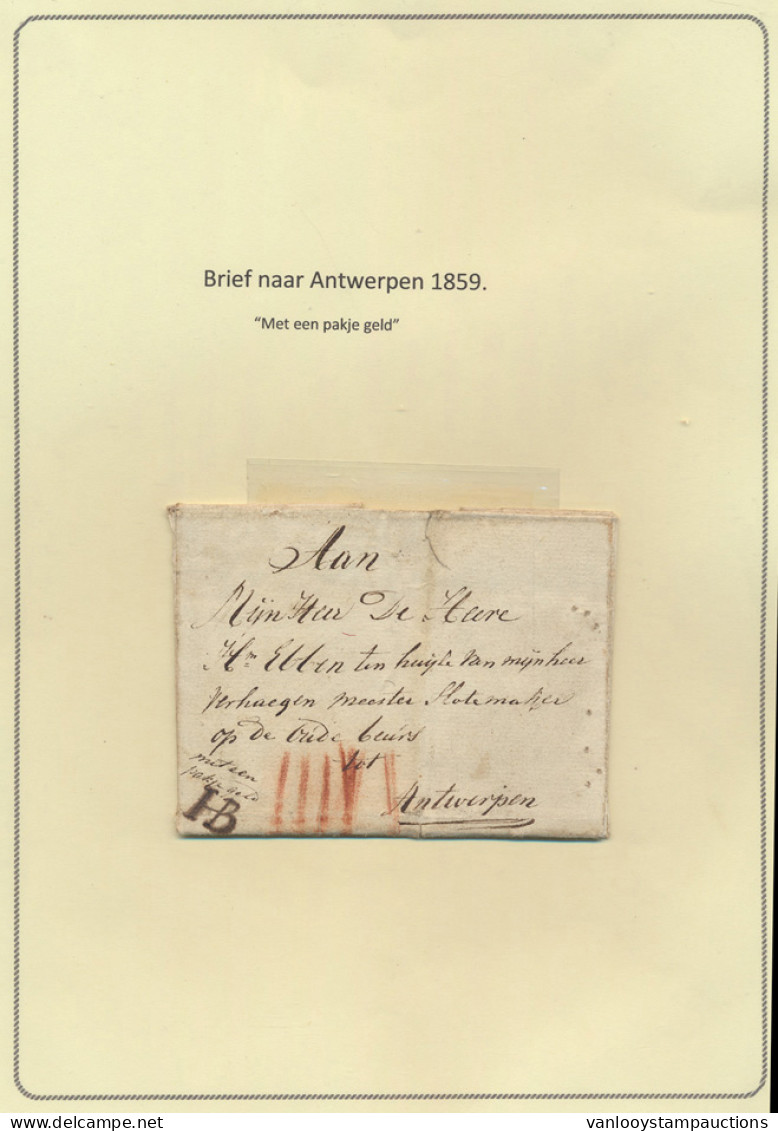 Brief naar Antwerpen 1859.
“Met een pakje geld”
Aan
MijnHeer De Heere
Hm Ebben ten huijse van mijnheer
verhaegen meester Slotemaker
op de oude beurs
tot
Antwerpen
met een
pakje geld
HB
vanlooystampauctions